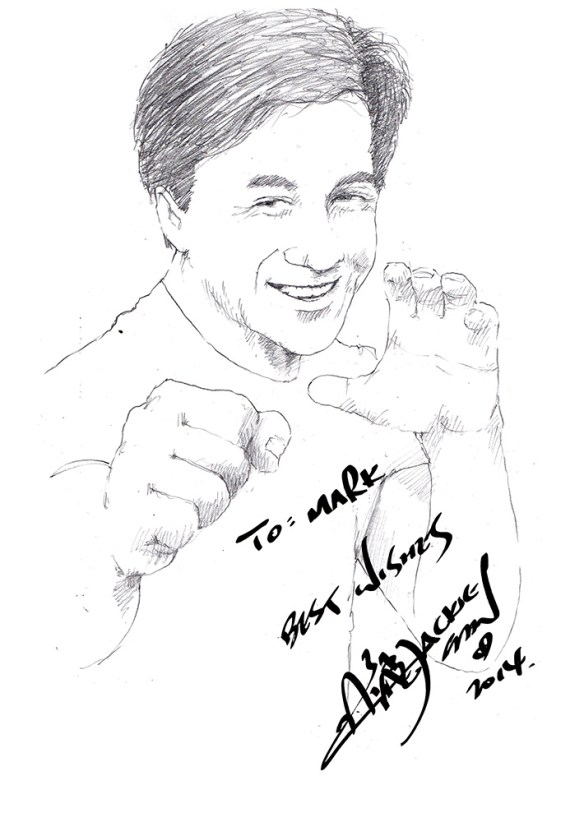 TO: MARK
BEST WISHES
JACKIE
2014.